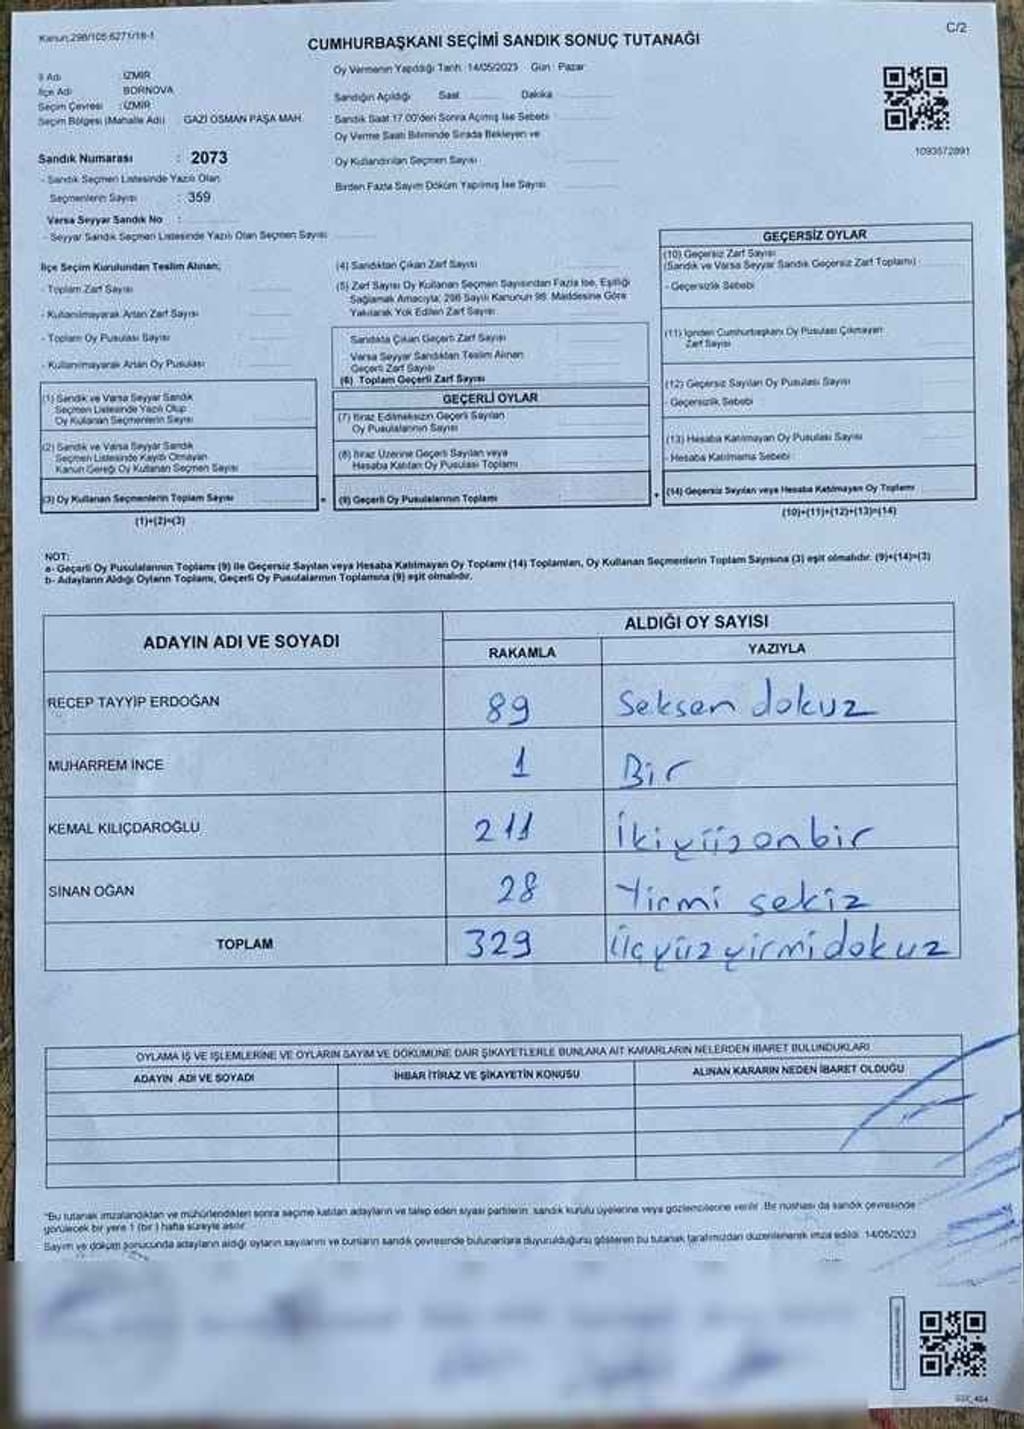 Kanun:298/105 6271/18-1
C/2
CUMHURBAŞKANI SEÇİMİ SANDIK SONUÇ TUTANAĞI
İl Adı : İZMİR
İlçe Adı : BORNOVA
Seçim Çevresi : İZMİR
Seçim Bölgesi (Mahalle Adı) GAZİ OSMAN PAŞA MAH.
Sandık Numarası : 2073
- Sandık Seçmen Listesinde Yazılı Olan
Seçmenlerin Sayısı : 359
Varsa Seyyar Sandık No :
- Seyyar Sandık Seçmen Listesinde Yazılı Olan Seçmen Sayısı
Oy Vermenin Yapıldığı Tarih: 14/05/2023 Gün : Pazar
Sandığın Açıldığı Saat Dakika
Sandık Saat 17.00'den Sonra Açılmış İse Sebebi
Oy Verme Saati Bitiminde Sırada Bekleyen ve
Oy Kullandırılan Seçmen Sayısı
Birden Fazla Sayım Döküm Yapılmış İse Sayısı
1093572891
İlçe Seçim Kurulundan Teslim Alınan;
- Toplam Zarf Sayısı
- Kullanılmayarak Artan Zarf Sayısı
- Toplam Oy Pusulası Sayısı
- Kullanılmayarak Artan Oy Pusulası
(1) Sandık ve Varsa Seyyar Sandık
Seçmen Listesinde Yazılı Olup
Oy Kullanan Seçmenlerin Sayısı
(2) Sandık ve Varsa Seyyar Sandık
Seçmen Listesinde Kayıtlı Olmayan
Kanun Gereği Oy Kullanan Seçmen Sayısı
(3) Oy Kullanan Seçmenlerin Toplam Sayısı
(1)+(2)=(3)
(4) Sandıktan Çıkan Zarf Sayısı
(5) Zarf Sayısı Oy Kullanan Seçmen Sayısından Fazla İse, Eşitliği
Sağlamak Amacıyla; 298 Sayılı Kanunun 98. Maddesine Göre
Yakılarak Yok Edilen Zarf Sayısı
Sandıkta Çıkan Geçerli Zarf Sayısı
Varsa Seyyar Sandıktan Teslim Alınan
Geçerli Zarf Sayısı
(6) Toplam Geçerli Zarf Sayısı
GEÇERLİ OYLAR
(7) İtiraz Edilmeksizin Geçerli Sayılan
Oy Pusulalarının Sayısı
(8) İtiraz Üzerine Geçerli Sayılan veya
Hesaba Katılan Oy Pusulası Toplamı
= (9) Geçerli Oy Pusulalarının Toplamı
GEÇERSİZ OYLAR
(10) Geçersiz Zarf Sayısı
(Sandık ve Varsa Seyyar Sandık Geçersiz Zarf Toplamı)
- Geçersizlik Sebebi
(11) İçinden Cumhurbaşkanı Oy Pusulası Çıkmayan
Zarf Sayısı
(12) Geçersiz Sayılan Oy Pusulası Sayısı
- Geçersizlik Sebebi
(13) Hesaba Katılmayan Oy Pusulası Sayısı
- Hesaba Katılmama Sebebi
+ (14) Geçersiz Sayılan veya Hesaba Katılmayan Oy Toplamı
(10)+(11)+(12)+(13)=(14)
NOT:
a- Geçerli Oy Pusulalarının Toplamı (9) ile Geçersiz Sayılan veya Hesaba Katılmayan Oy Toplamı (14) Toplamları, Oy Kullanan Seçmenlerin Toplam Sayısına (3) eşit olmalıdır. (9)+(14)=(3)
b- Adayların Aldığı Oyların Toplamı, Geçerli Oy Pusulalarının Toplamına (9) eşit olmalıdır.
ADAYIN ADI VE SOYADI
ALDIĞI OY SAYISI
RAKAMLA YAZIYLA
RECEP TAYYİP ERDOĞAN 89 Seksen dokuz
MUHARREM İNCE 1 Bir
KEMAL KILIÇDAROĞLU 211 İkiyüzonbir
SİNAN OĞAN 28 Yirmi sekiz
TOPLAM 329 Üçyüzyirmidokuz
OYLAMA İŞ VE İŞLEMLERİNE VE OYLARIN SAYIM VE DÖKÜMÜNE DAİR ŞİKAYETLERLE BUNLARA AİT KARARLARIN NELERDEN İBARET BULUNDUKLARI
ADAYIN ADI VE SOYADI İHBAR İTİRAZ VE ŞİKAYETİN KONUSU ALINAN KARARIN NEDEN İBARET OLDUĞU
"Bu tutanak imzalandıktan ve mühürlendikten sonra seçime katılan adayların ve talep eden siyasi partilerin sandık kurulu üyelerine veya gözlemcilerine verilir. Bir nüshası da sandık çevresinde
görülecek bir yere 1 (bir) hafta süreyle asılır.
Sayım ve döküm sonucunda adayların aldığı oyların sayılarını ve bunların sandık çevresinde bulunanlara duyurulduğunu gösteren bu tutanak tarafımızdan düzenlenerek imza edildi. 14/05/2023